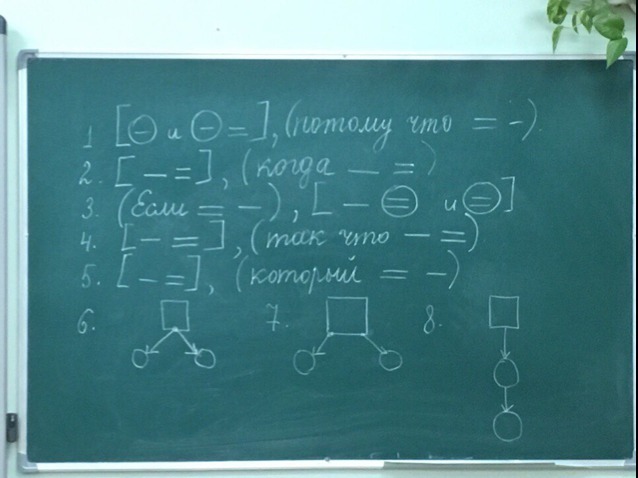 1 [⊖ и ⊖ =], (потому что = -).
2. [ — = ], (когда — = )
3. (Если = -), [ - ⊜ и ⊜ ]
4. [ - = ], (так что — = )
5. [ - = ], (который = - )
6. 7. 8.